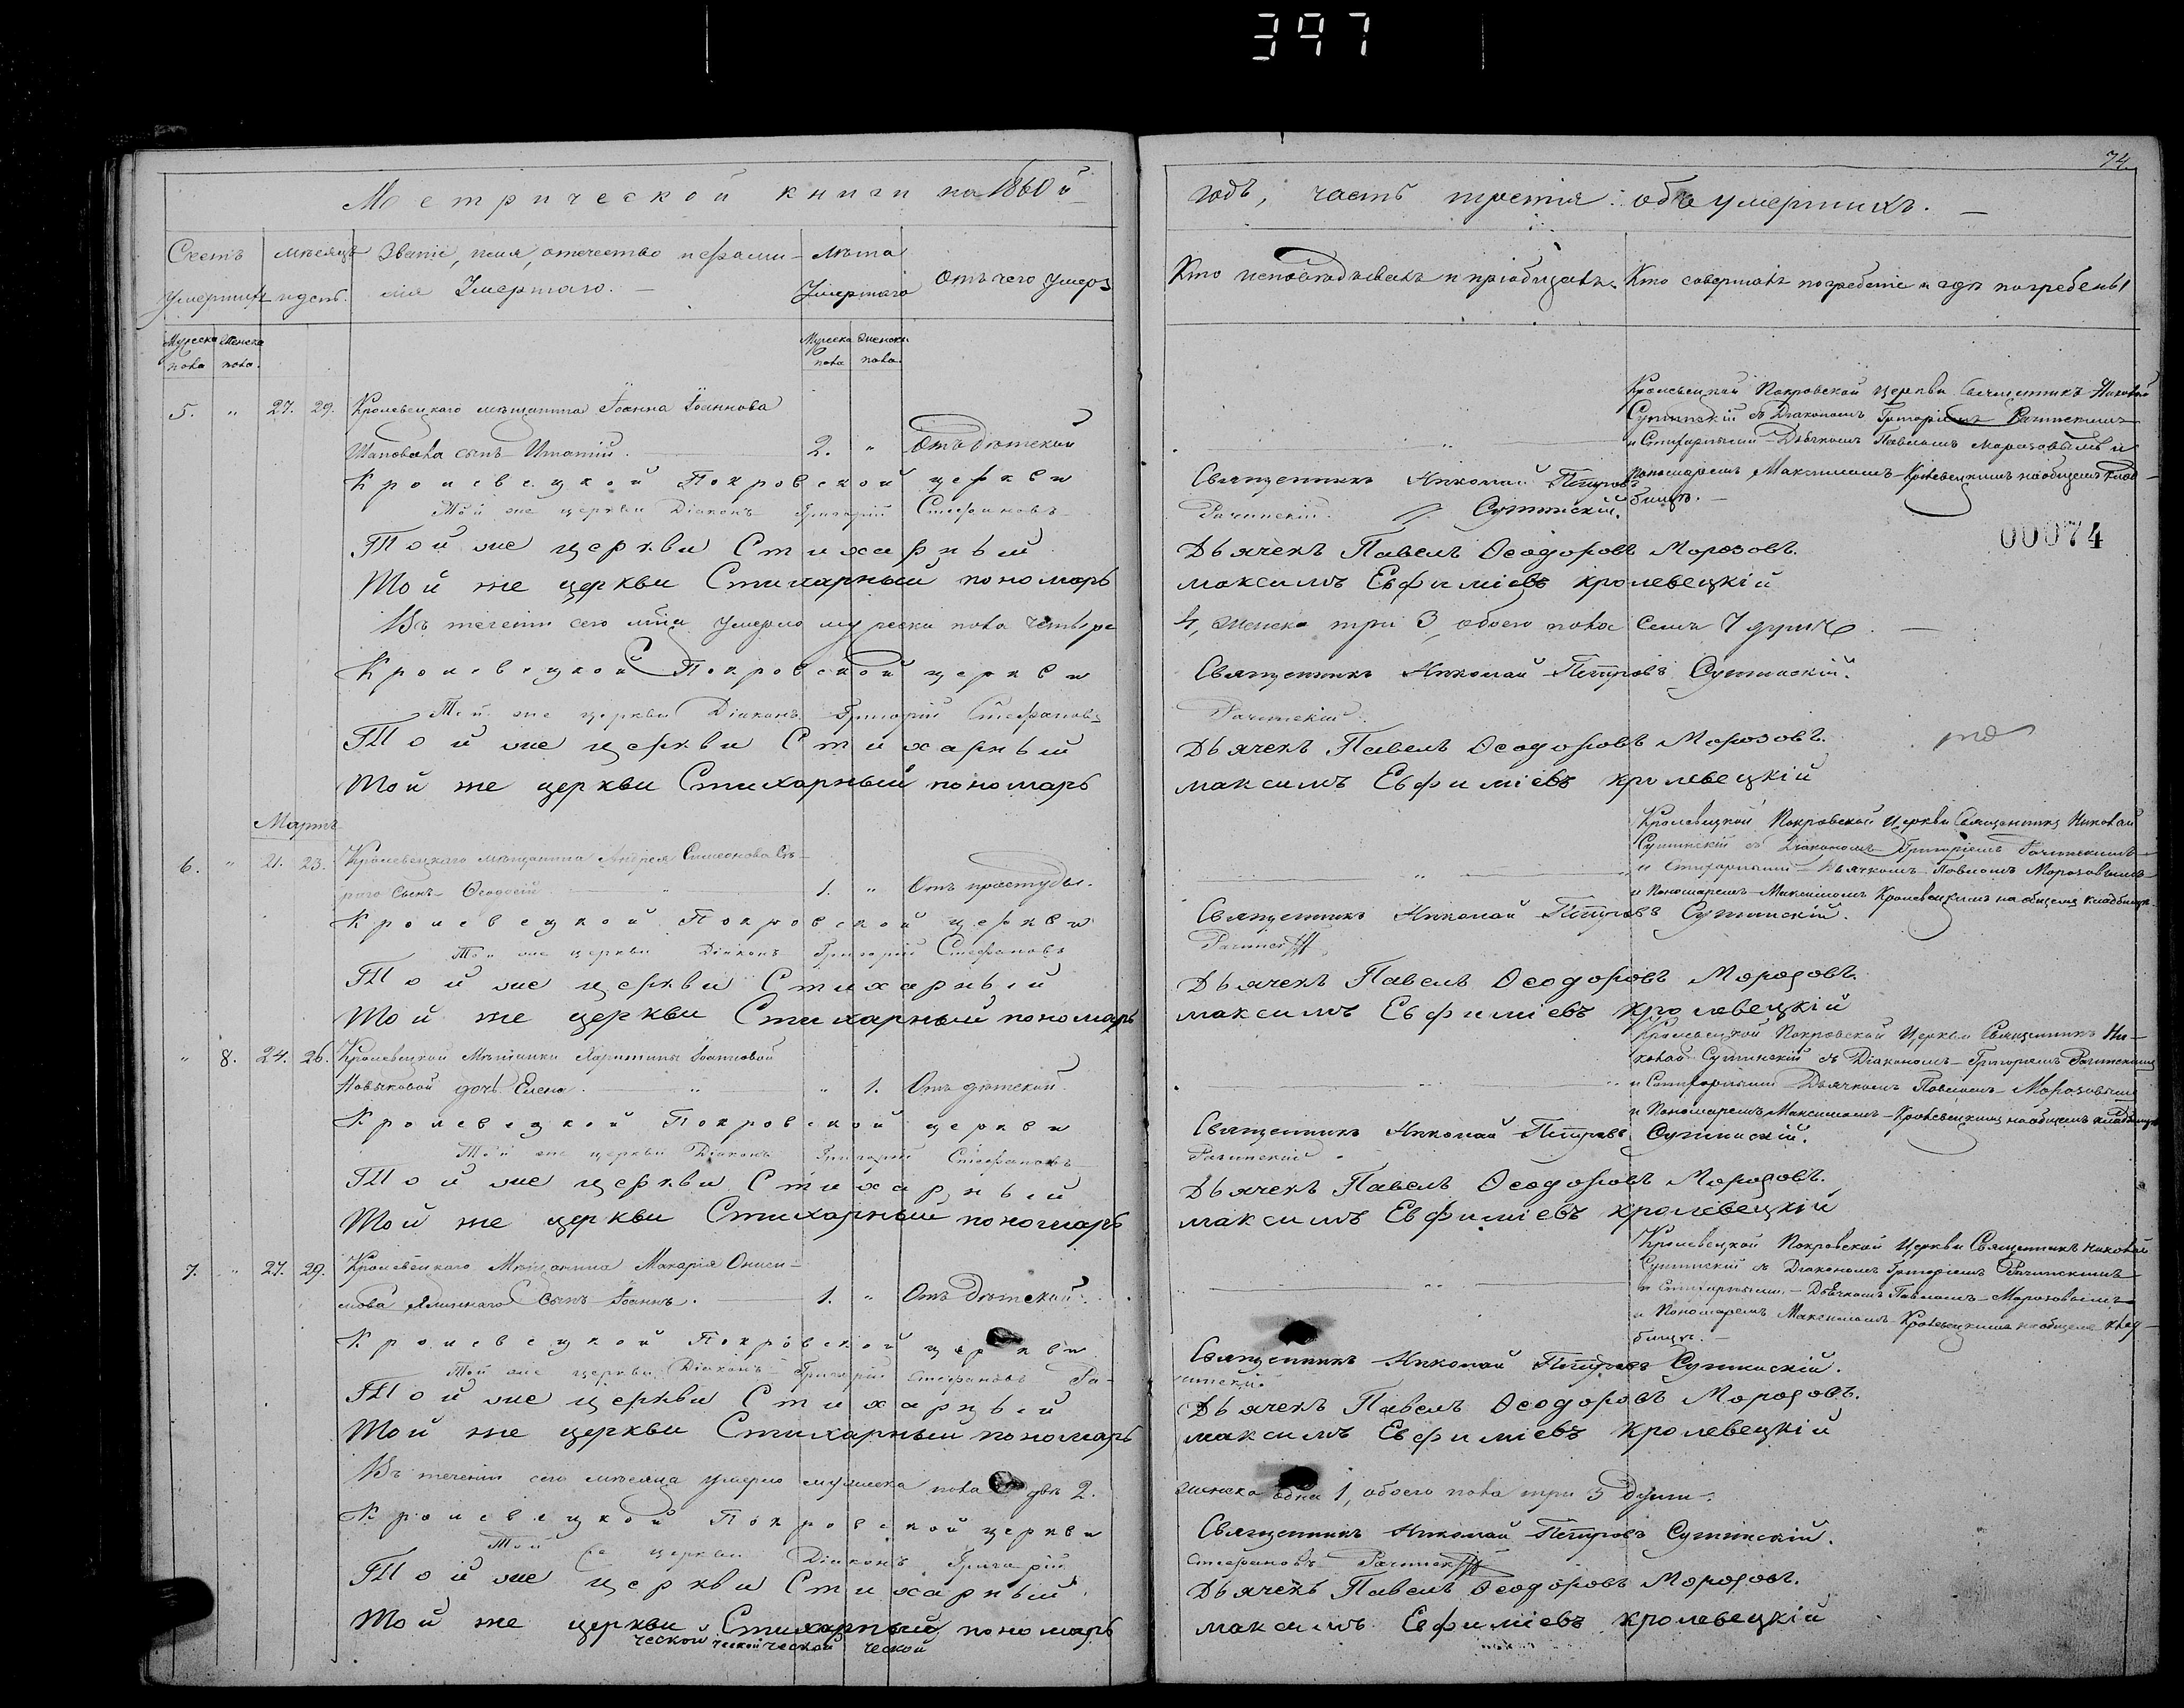 397
74.
Метрической книги на 1860й
годъ, часть третія: объ умершихъ.
Счетъ умершихъ
Мужеска пола
Женска пола.
мѣсяцъ и день.
Званіе, имя, отечество и фами-
лія Умершаго.
Лѣта Умершаго
Мужеска пола
Женска пола.
Отъ чего умеръ
Кто исповѣдывалъ и пріобщалъ.
Кто совершалъ погребеніе и гдѣ погребены
5. " 27. 29. Кролевецкаго мѣщанина Іоанна Іоаннова
Шаповала сынъ Игнатій. 2. " Отъ дѣтской
Кролевецкой Покровской церкви Священникъ Николай
Сутинскій съ Діакономъ Григоріемъ Рачинскимъ
и Стихарными Дьячкомъ Павломъ Морозовымъ и
Пономаремъ Максимомъ Кролевецкимъ на общемъ клад-
бищѣ.
Кролевецкой Покровской церкви
Священникъ Николай Петровъ Сутинскій.
Той же церкви Діаконъ Григорій Стефановъ
Рачинскій.
Той же церкви Стихарный
Дьячекъ Павелъ Ѳеодоровъ Морозовъ.
00074
Той же церкви Стихарный пономарь
максимъ Евфиміевъ кролевецкій
Въ теченіи сего м-ца умерло мужеска пола четыре
4, женска три 3, обоего пола семь 7 душъ.
Кролевецкой Покровской церкви
Священникъ Николай Петровъ Сутинскій.
Той же церкви Діаконъ Григорій Стефановъ
Рачинскій.
Той же церкви Стихарный
Дьячекъ Павелъ Ѳеодоровъ Морозовъ.
Той же церкви Стихарный пономарь
максимъ Евфиміевъ кролевецкій
Мартъ
6. " 21. 23. Кролевецкаго мѣщанина Андрея Симеонова
сынъ Ѳеодосій 1. " Отъ простуды.
Кролевецкой Покровской Церкви Священникъ Николай
Сутинскій съ Діакономъ Григоріемъ Рачинскимъ
и Стихарными Дьячкомъ Павломъ Морозовымъ
и Пономаремъ Максимомъ Кролевецкимъ на общемъ кладбищѣ.
Кролевецкой Покровской церкви
Священникъ Николай Петровъ Сутинскій.
Той же церкви Діаконъ Григорій Стефановъ
Той же церкви Стихарный
Дьячекъ Павелъ Ѳеодоровъ Морозовъ.
Той же церкви Стихарный пономарь
максимъ Евфиміевъ кролевецкій
" 8. 24. 26. Кролевецкой Мѣщанки Харитины Іоанновой
Новиковой дочь Елена " 1. Отъ дѣтской.
Кролевецкой Покровской Церкви Священникъ Ни-
колай Сутинскій съ Діакономъ Григоріемъ Рачинскимъ
и Стихарными Дьячкомъ Павломъ Морозовымъ
и Пономаремъ Максимомъ Кролевецкимъ на общемъ кладбищѣ
Кролевецкой Покровской церкви
Священникъ Николай Петровъ Сутинскій.
Той же церкви Діаконъ Григорій Стефановъ
Рачинскій
Той же церкви Стихарный
Дьячекъ Павелъ Ѳеодоровъ Морозовъ.
Той же церкви Стихарный пономарь
максимъ Евфиміевъ кролевецкій
7. " 27. 29. Кролевецкаго Мѣщанина Макарія Ониси-
мова Ялинскаго Сынъ Іоаннъ. 1. " Отъ Дѣтской.
Кролевецкой Покровской Церкви Священникъ Николай
Сутинскій съ Діакономъ Григоріемъ Рачинскимъ
и Стихарными Дьячкомъ Павломъ Морозовымъ
и Пономаремъ Максимомъ Кролевецкимъ на общемъ клад-
бищѣ.
Кролевецкой Покровской церкви
Священникъ Николай Петровъ Сутинскій.
Той же церкви Діаконъ Григорій Стефановъ Ра-
чинскій.
Той же церкви Стихарный
Дьячекъ Павелъ Ѳеодоровъ Морозовъ.
Той же церкви Стихарный пономарь
максимъ Евфиміевъ кролевецкій
Въ теченіи сего мѣсяца умерло мужеска пола два 2.
женска одна 1, обоего пола три 3 души.
Кролевецкой Покровской церкви
Священникъ Николай Петровъ Сутинскій.
Той же церкви Діаконъ Григорій
Стефановъ
Той же церкви Стихарный
Дьячекъ Павелъ Ѳеодоровъ Морозовъ.
Той же церкви Стихарный пономарь
максимъ Евфиміевъ кролевецкій
ческой ческой ческой ческой